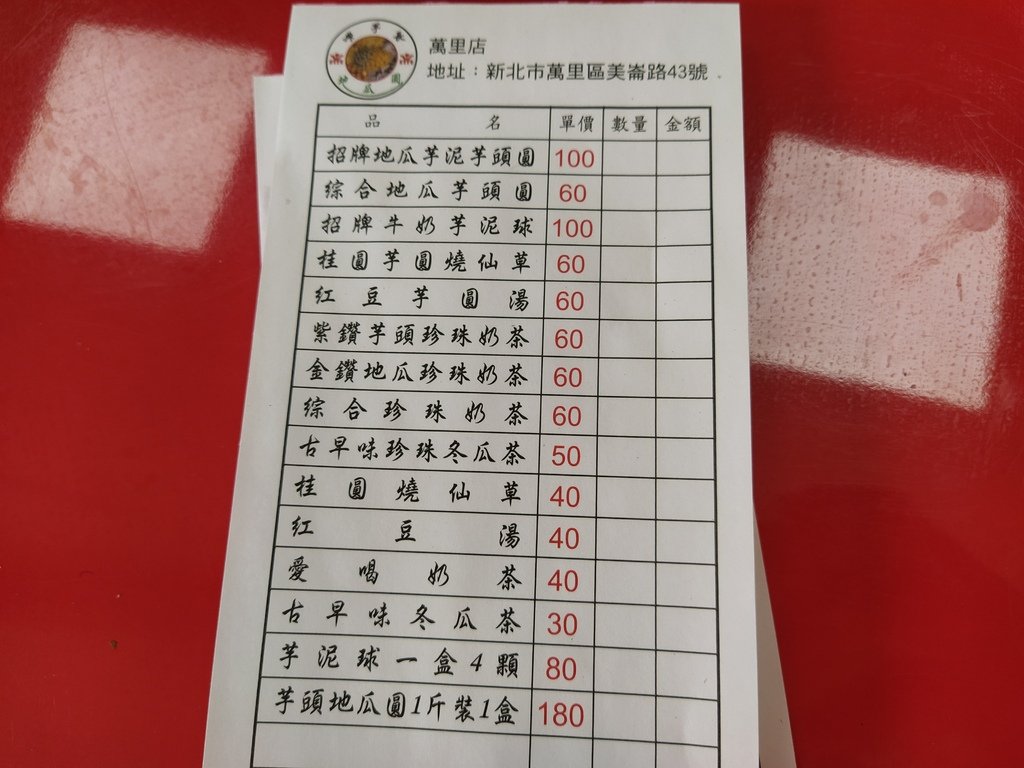 萬里店
地址：新北市萬里區美崙路43號
品名 單價 數量 金額
招牌地瓜芋泥芋頭圓 100
綜合地瓜芋頭圓 60
招牌牛奶芋泥球 100
桂圓芋圓燒仙草 60
紅豆芋圓湯 60
紫鑽芋頭珍珠奶茶 60
金鑽地瓜珍珠奶茶 60
綜合珍珠奶茶 60
古早味珍珠冬瓜茶 50
桂圓燒仙草 40
紅豆湯 40
愛喝奶茶 40
古早味冬瓜茶 30
芋泥球一盒4顆 80
芋頭地瓜圓1斤裝1盒 180